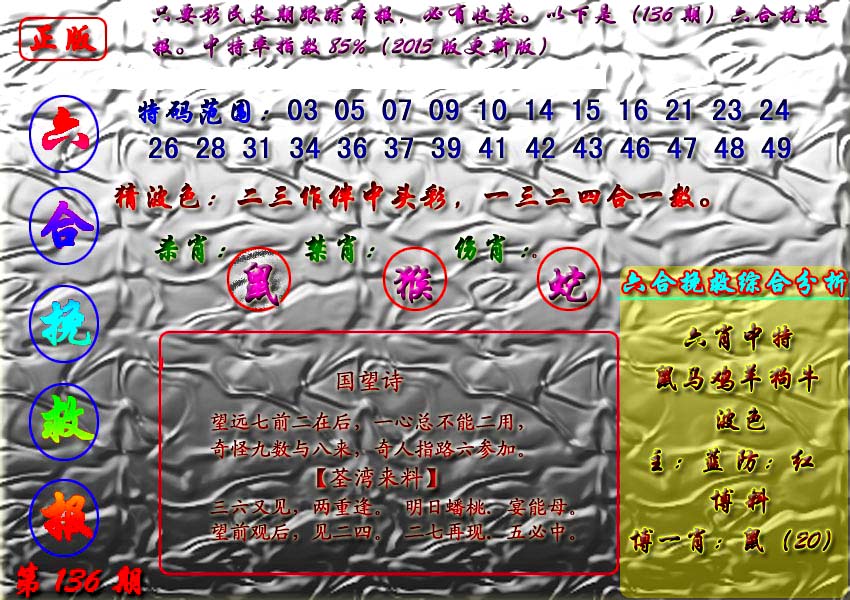 正版
只要彩民长期跟踪本报，必有收获。以下是（136期）六合挽救
报。中特率指数85%（2015版更新版）
六合挽救报
第136期
特码范围：03 05 07 09 10 14 15 16 21 23 24
26 28 31 34 36 37 39 41 42 43 46 47 48 49
猜波色：二三作伴中头彩，一三二四合一数。
杀肖：鼠 禁肖：猴 伤肖：蛇。
国望诗
望远七前二在后，一心总不能二用，
奇怪九数与八来，奇人指路六参加。
【荃湾来料】
三六又见，两重逢。 明日蟠桃．宴能母。
望前观后，见二四。 二七再现．五必中。
六合挽救综合分析
六肖中特
鼠马鸡羊狗牛
波色
主：蓝防：红
博料
博一肖：鼠（20）